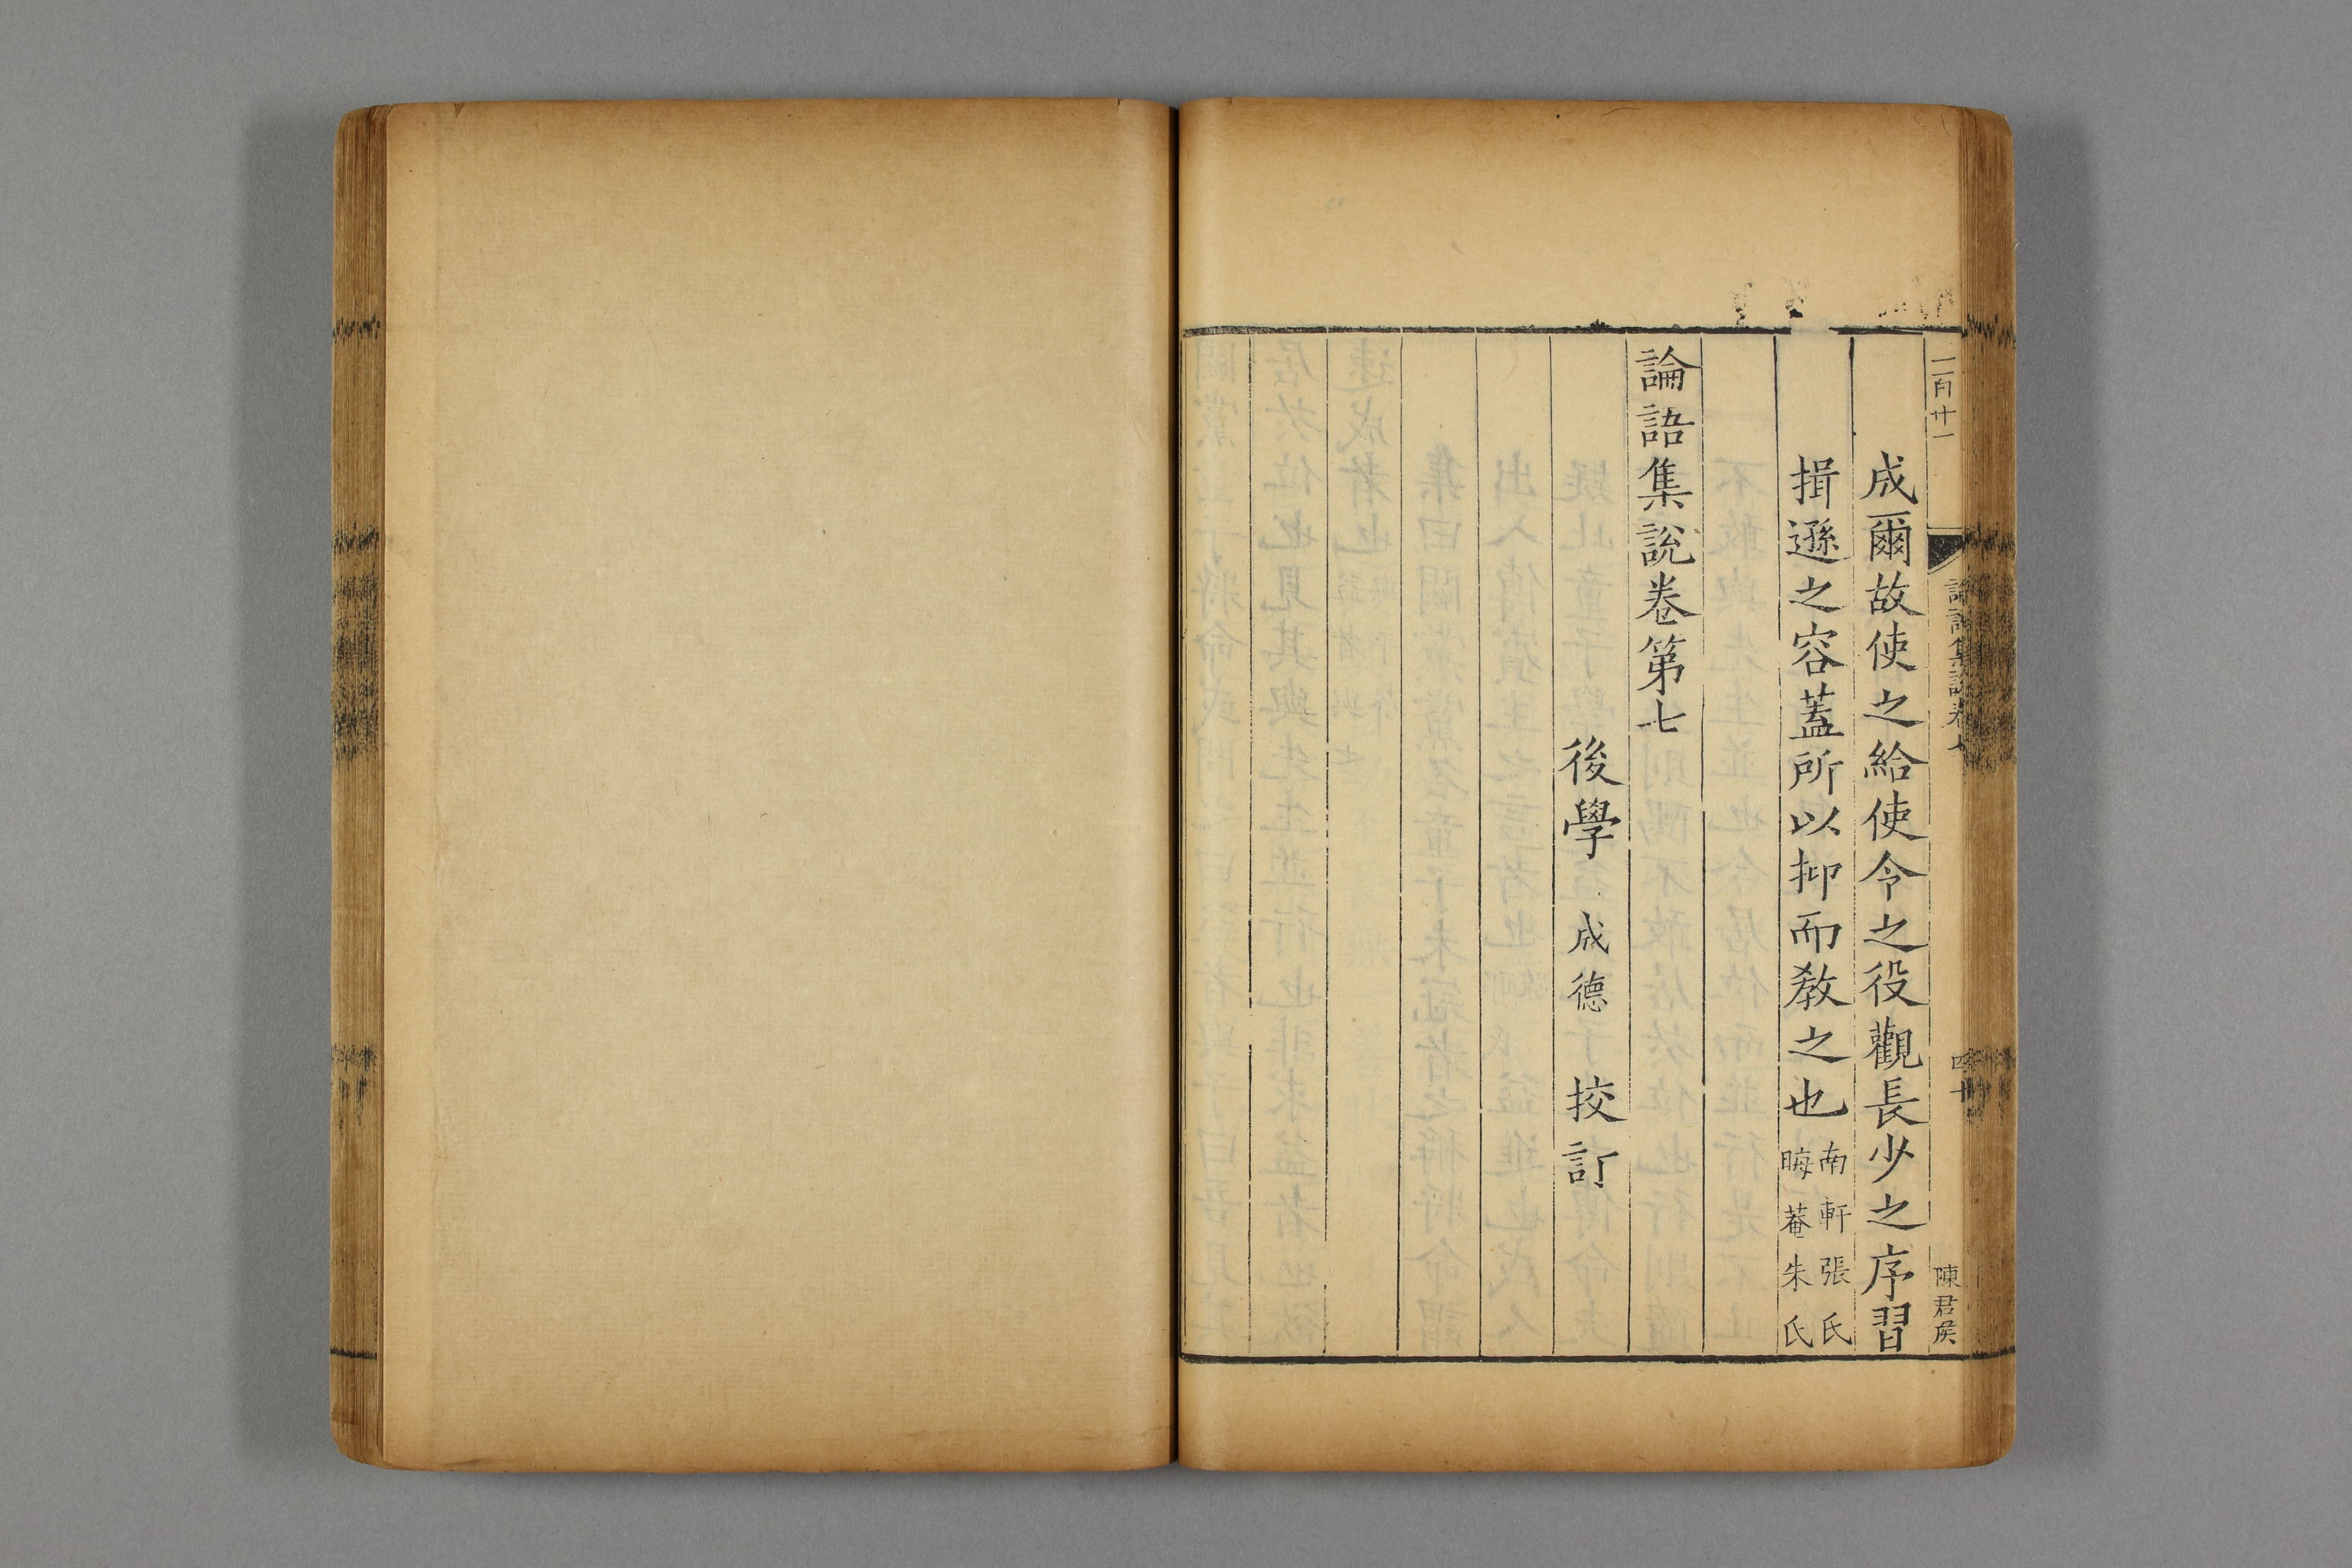 成爾故使之給使令之役觀長少之序習
揖遜之容蓋所以抑而教之也南軒張氏
晦菴朱氏
論語集說卷第七
後學 成德 挍訂
二百廿一
論語集說卷七
四十
陳君矦